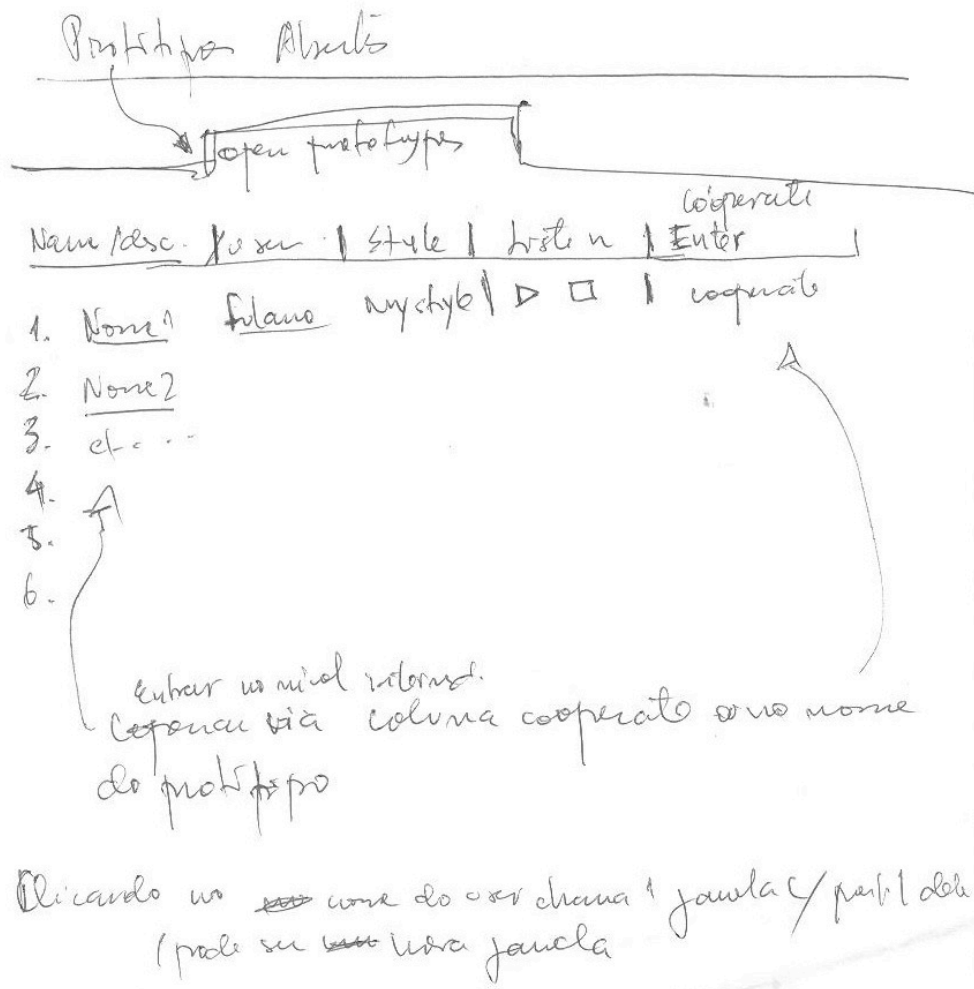 Protótipos Abertos
open prototypes
Name/desc. | user | Style | Listen | cooperate Enter |
1. Nome1 fulano mystyle | ▷ □ | cooperate
2. Nome2
3. etc...
4.
5.
6.
Entrar no nível
via coluna cooperate ou no nome
do protótipo
Clicando no nome do user chama 1 janela c/ perfil dele
(pode ser nova janela